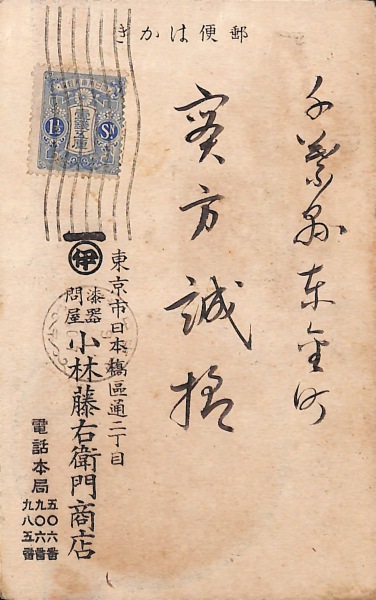 郵便はかき
千葉縣東金町
實方誠様
1½ SN
東京市日本橋區通二丁目
伊
漆器
問屋
小林藤右衛門商店
電話本局
五〇六番
九〇六番
九八五番